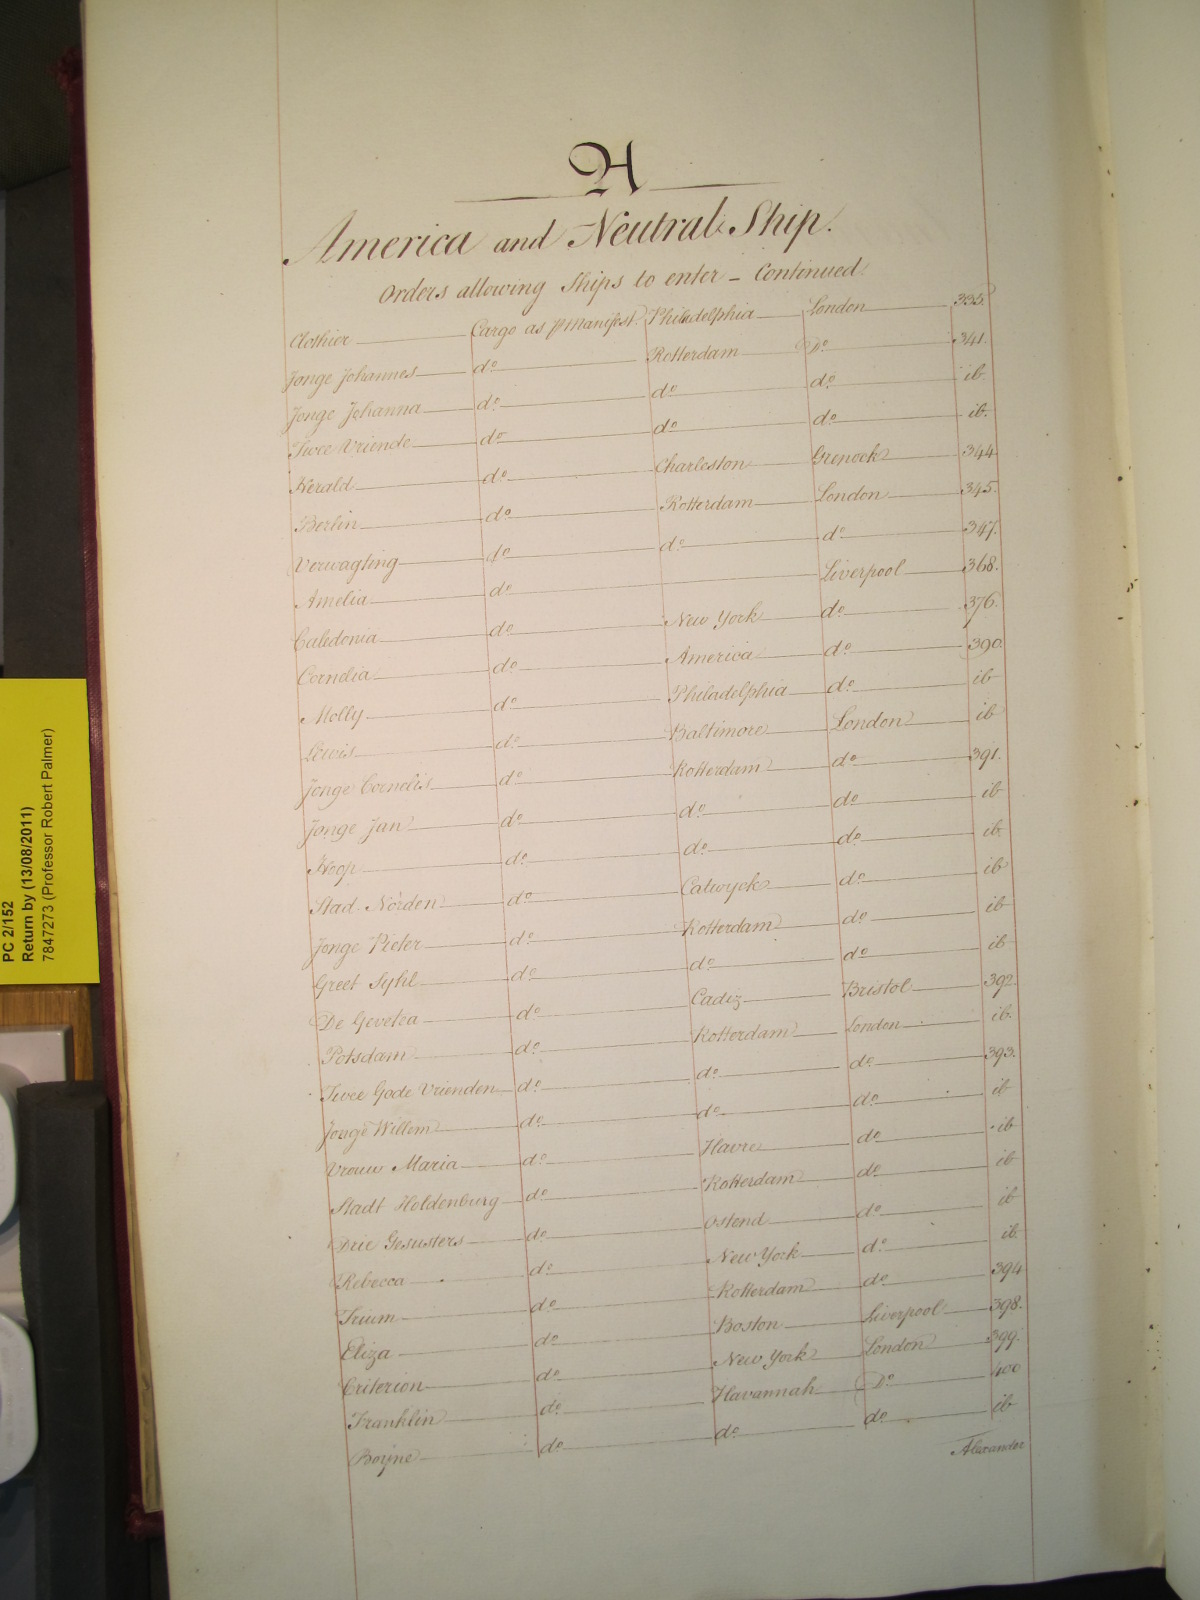 A
America and Neutral Ship.
Orders allowing Ships to enter - Continued
Clothier Cargo as p Manifest Philadelphia London 335.
Jonge Johannes do Rotterdam Do 341.
Jonge Johanna do do do ib
Twee Vriende do do do ib.
Herald do Charleston Grenock 344
Berlin do Rotterdam London 345.
Verwagting do do do 347.
Amelia do Liverpool 368.
Caledonia do New York do 376.
Cornelia do America do 390.
Molly do Philadelphia do ib
Lewis do Baltimore London ib
Jonge Cornelis do Rotterdam do 391.
Jonge Jan do do do ib
Hoop do do do ib
Stad Norden do Catwyck do ib
Jonge Pieter do Rotterdam do ib
Greet Syhl do do do ib
De Gevetea do Cadiz Bristol 392.
Potsdam do Rotterdam London ib.
Twee Gode Vrienden do do do 393.
Jonge Willem do do do ib
Vrouw Maria do Havre do ib
Stadt Holdenburg do Rotterdam do ib
Drie Gesusters do Ostend do ib
Rebecca do New York do ib.
Trium do Rotterdam do 394
Eliza do Boston Liverpool 398.
Criterion do New York London 399.
Franklin do Havannah Do 400
Boyne do do do ib
Alexander
PC 2/152
Return by (13/08/2011)
7847273 (Professor Robert Palmer)